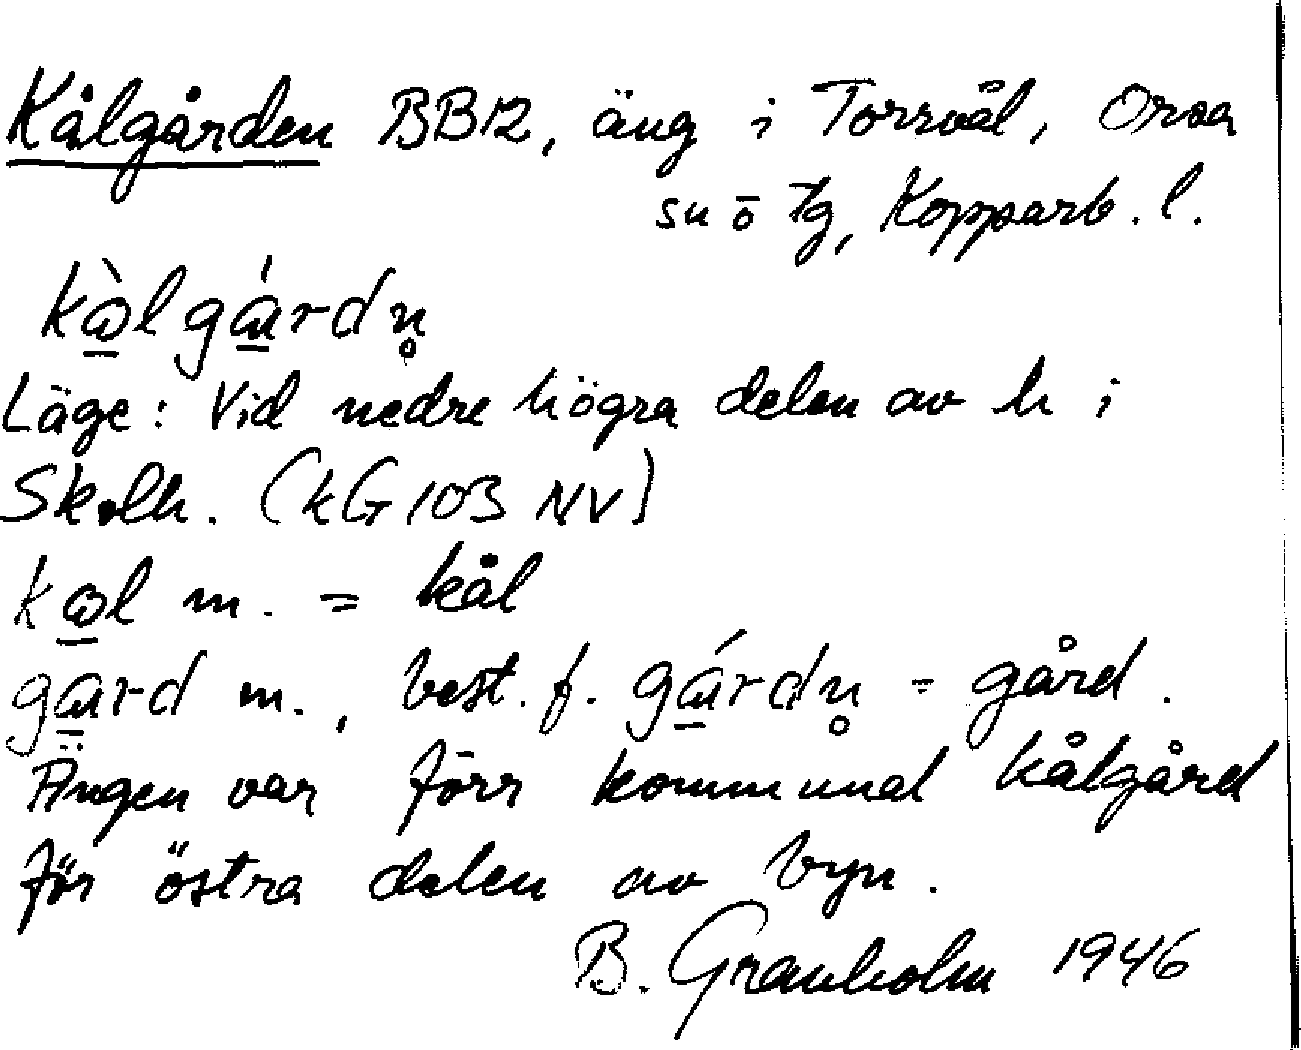 Kålgården BB12, äng i Torrvål, Orsa
sn o tg, Kopparb. l.
kàlgárdn̥
Läge: Vid nedre högra delen av h i
Skolh. (kG 103 NV)
kal m. = kål
gard m., best. f. gárdn̥ = gård.
Ängen var förr kommunal kålgård
för östra delen av byn.
B. Granholm 1946